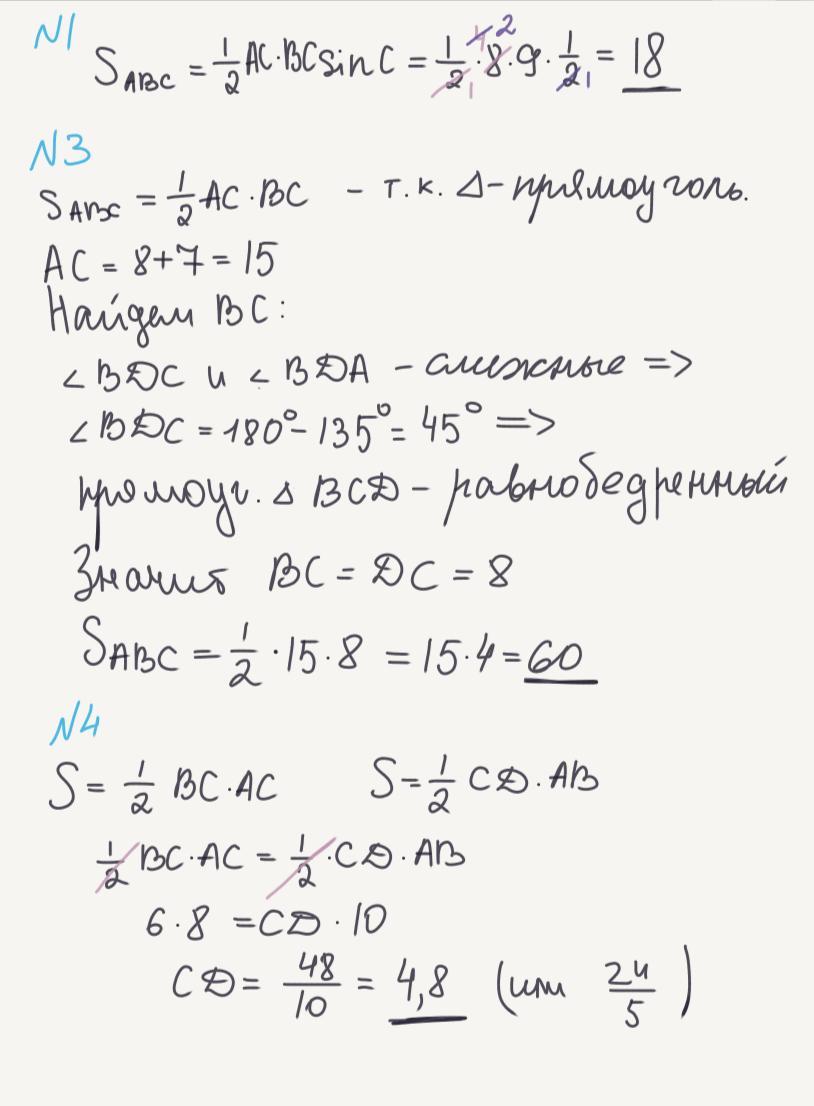 N1
S_ABC = 1/2 AC·BC sin C = 1/2 1 · 8 4 2 · 9 · 1/2 1 = 18
N3
S_ABC = 1/2 AC · BC – т.к. Δ–прямоуголь.
AC = 8+7 = 15
Найдем BC:
∠BDC и ∠BDA – смежные =>
∠BDC = 180° – 135° = 45° =>
прямоуг. Δ BCD – равнобедренный
Значит BC = DC = 8
S_ABC = 1/2 · 15 · 8 = 15 · 4 = 60
N4
S = 1/2 BC·AC S = 1/2 CD·AB
1/2 BC·AC = 1/2 · CD · AB
6 · 8 = CD · 10
CD = 48/10 = 4,8 (или 24/5)